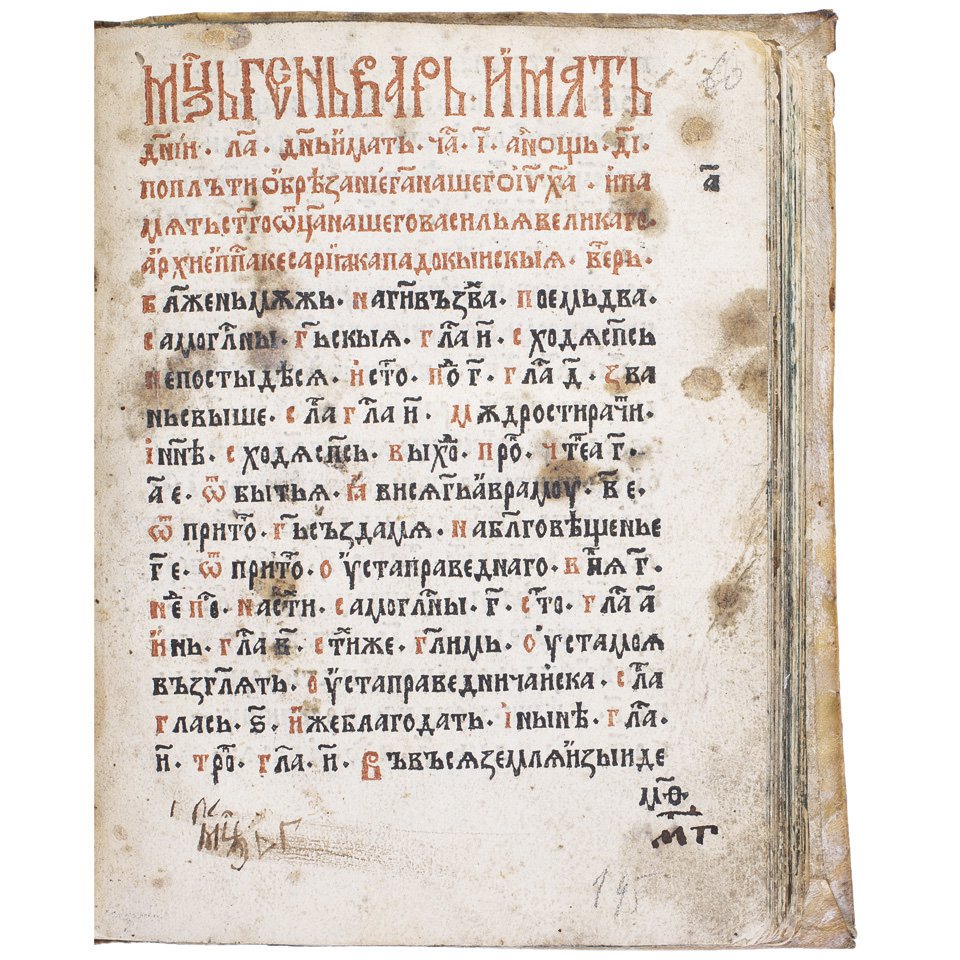 мц҃ьгеньварь· и҆мать
дн҃їи· ла҃· дн҃ьи҆мать· ча҃· і҃· ано҆щь· ді҃·
поплътиобрѣзанїега҃нашегоіу҃ха҃· ипа
мѧтьст҃гоѿца҃нашеговасильꙗвеликаго·
архиеп҃пакесарїѧкападокыискыѧ· ве҃рь·
бл҃женьмѫжь· нагв҃ъзва҃· поемьдва·
самогл҃ны· гь҃скыѧ· гла҃ и҃· сходѧсп҃сь
непостыдѣсѧ· исто҃· по҃ г҃· гла҃ д҃· зва
ньсвыше· сла҃ гла҃ и҃· мѫдростирачи҃·
інн҃ѣ· сходѧсп҃сь· выхо҃· про҃· чте҃а г҃·
а҃ е· ѿ бытьꙗ· ꙗвисѧгь҃аврамоу· в҃ е·
ѿ прито҃· гь҃създамѧ· набл҃говѣщенье
г҃ е· ѿ прито҃· оустаправеднаго· вн҃ѧ г҃·
не҃ по҃· насти҃· самогл҃ны· г҃· сто҃· гла҃ а҃
инь· гла҃ в҃· сти҃же· гл҃имь· оустамоѧ
възгл҃ѧть· оустаправедничаиска· сла҃
гласъ· ѕ҃· ижеблагодать· інынѣ· гла҃·
и҃· тро҃· гла҃· и҃· Въвъсѧземлѧизыиде
а҃
мѳ҃·
мг҃
195